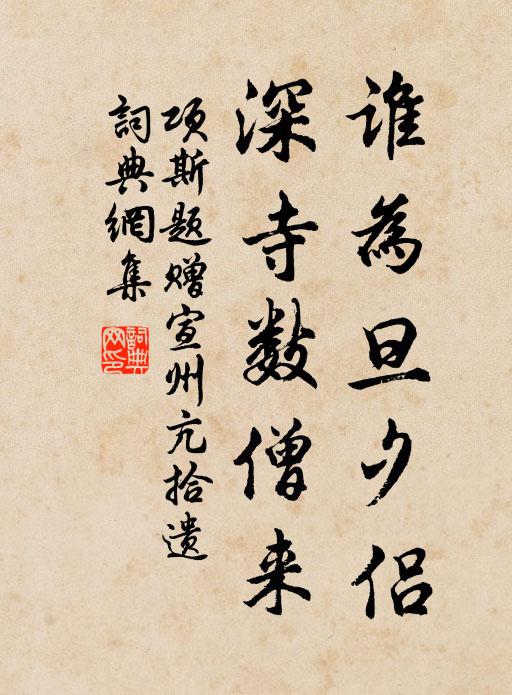 谁為旦夕侣
深寺数僧来
项斯题赠宣州亢拾遗
詞典網集
詞典网印